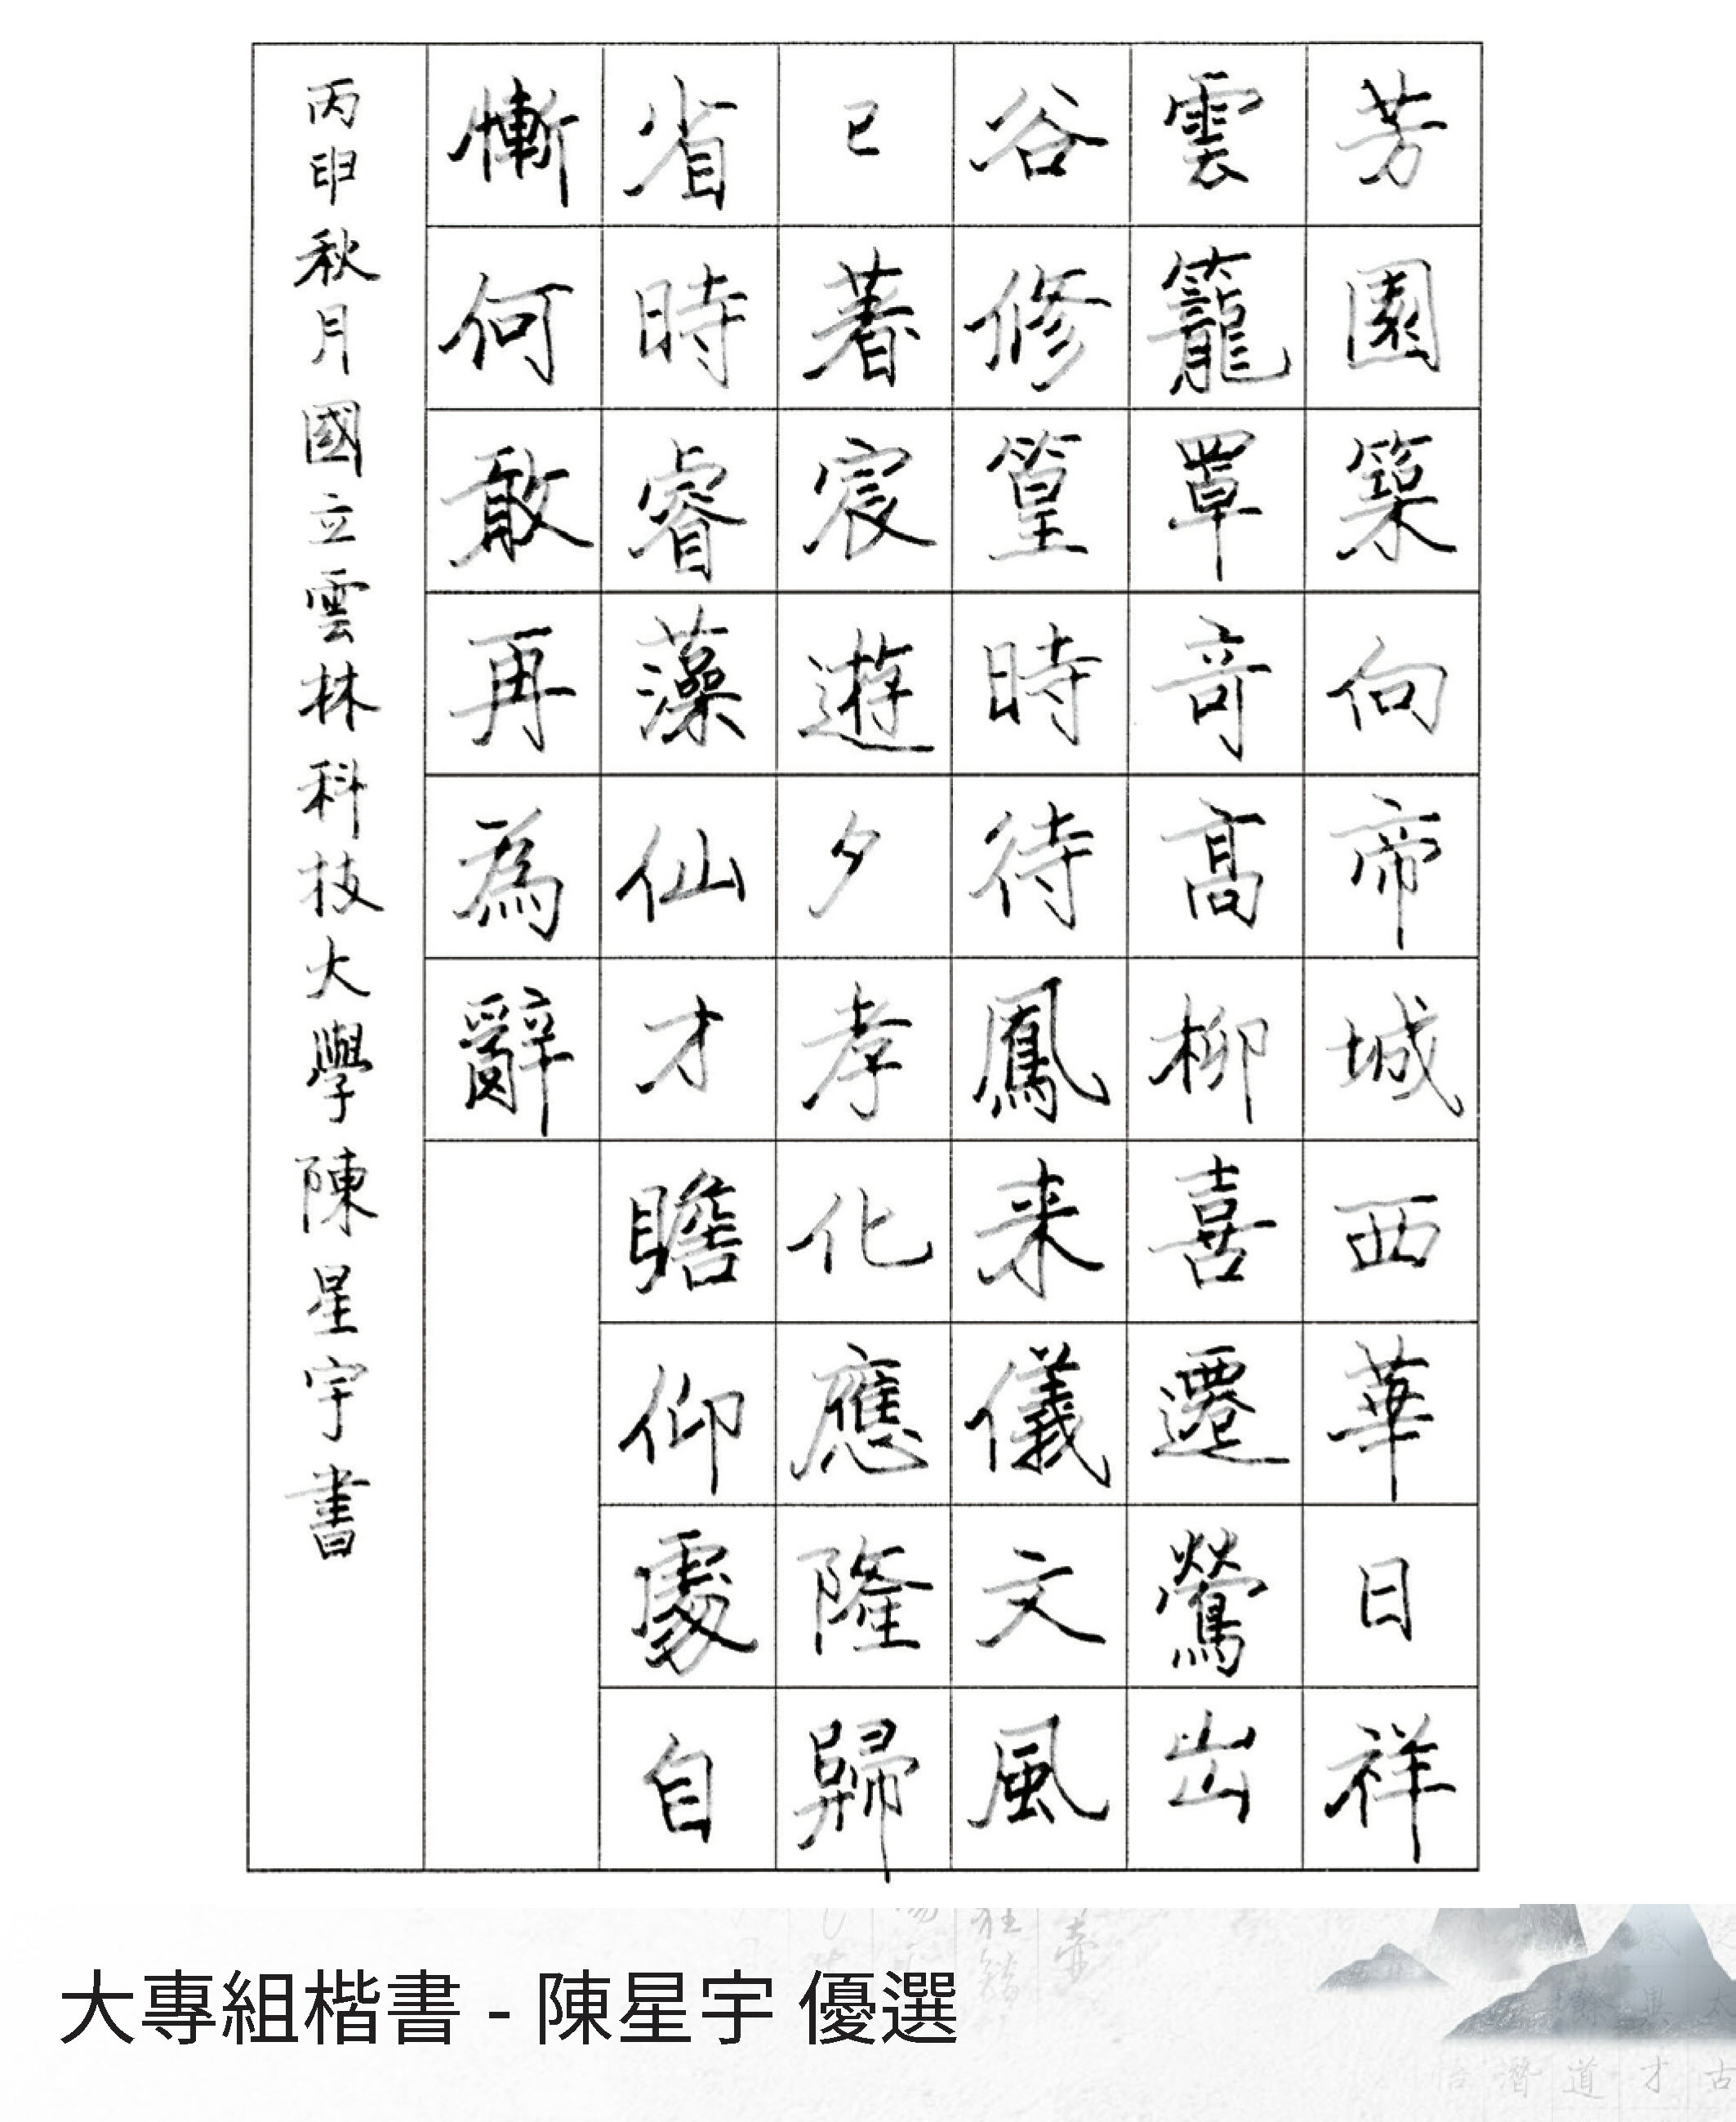 芳園築向帝城西華日祥
雲籠罩竒髙柳喜遷鶯出
谷修篁時待鳳来儀文風
已著宸遊夕孝化應隆歸
省時睿藻仙才瞻仰處自
慚何敢再為辭
丙申秋月國立雲林科技大學陳星宇書
大專組楷書 - 陳星宇 優選